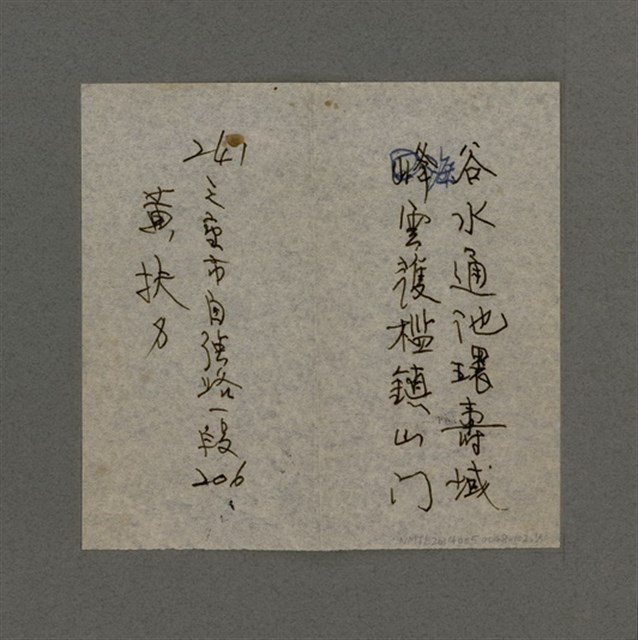 谷水通池環壽域
海
峰雲護檻鎮山门
241
三重市自強路一段206
黃扶力